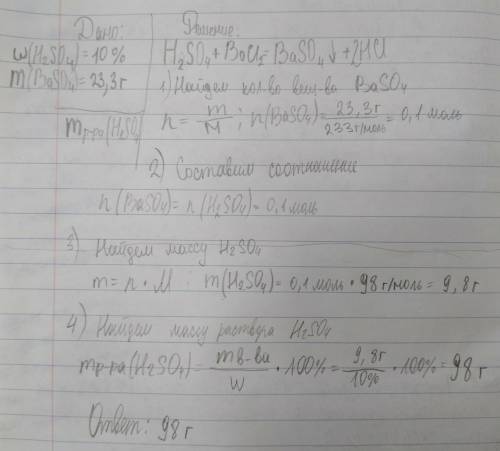 Дано:
w(H2SO4)=10%
m(BaSO4)=23,3г
mр-ра(H2SO4)
Решение:
H2SO4+BaCl2=BaSO4↓+2HCl
1) Найдем кол-во вещ-ва BaSO4
n=m/M; n(BaSO4)=23,3г/233г/моль=0,1моль
2) Составим соотношение
n(BaSO4)=n(H2SO4)=0,1моль
3) Найдем массу H2SO4
m=n·M; m(H2SO4)=0,1моль·98г/моль=9,8г
4) Найдем массу раствора H2SO4
mр-ра(H2SO4)=mв-ва/w·100%=9,8г/10%·100%=98г
Ответ: 98г